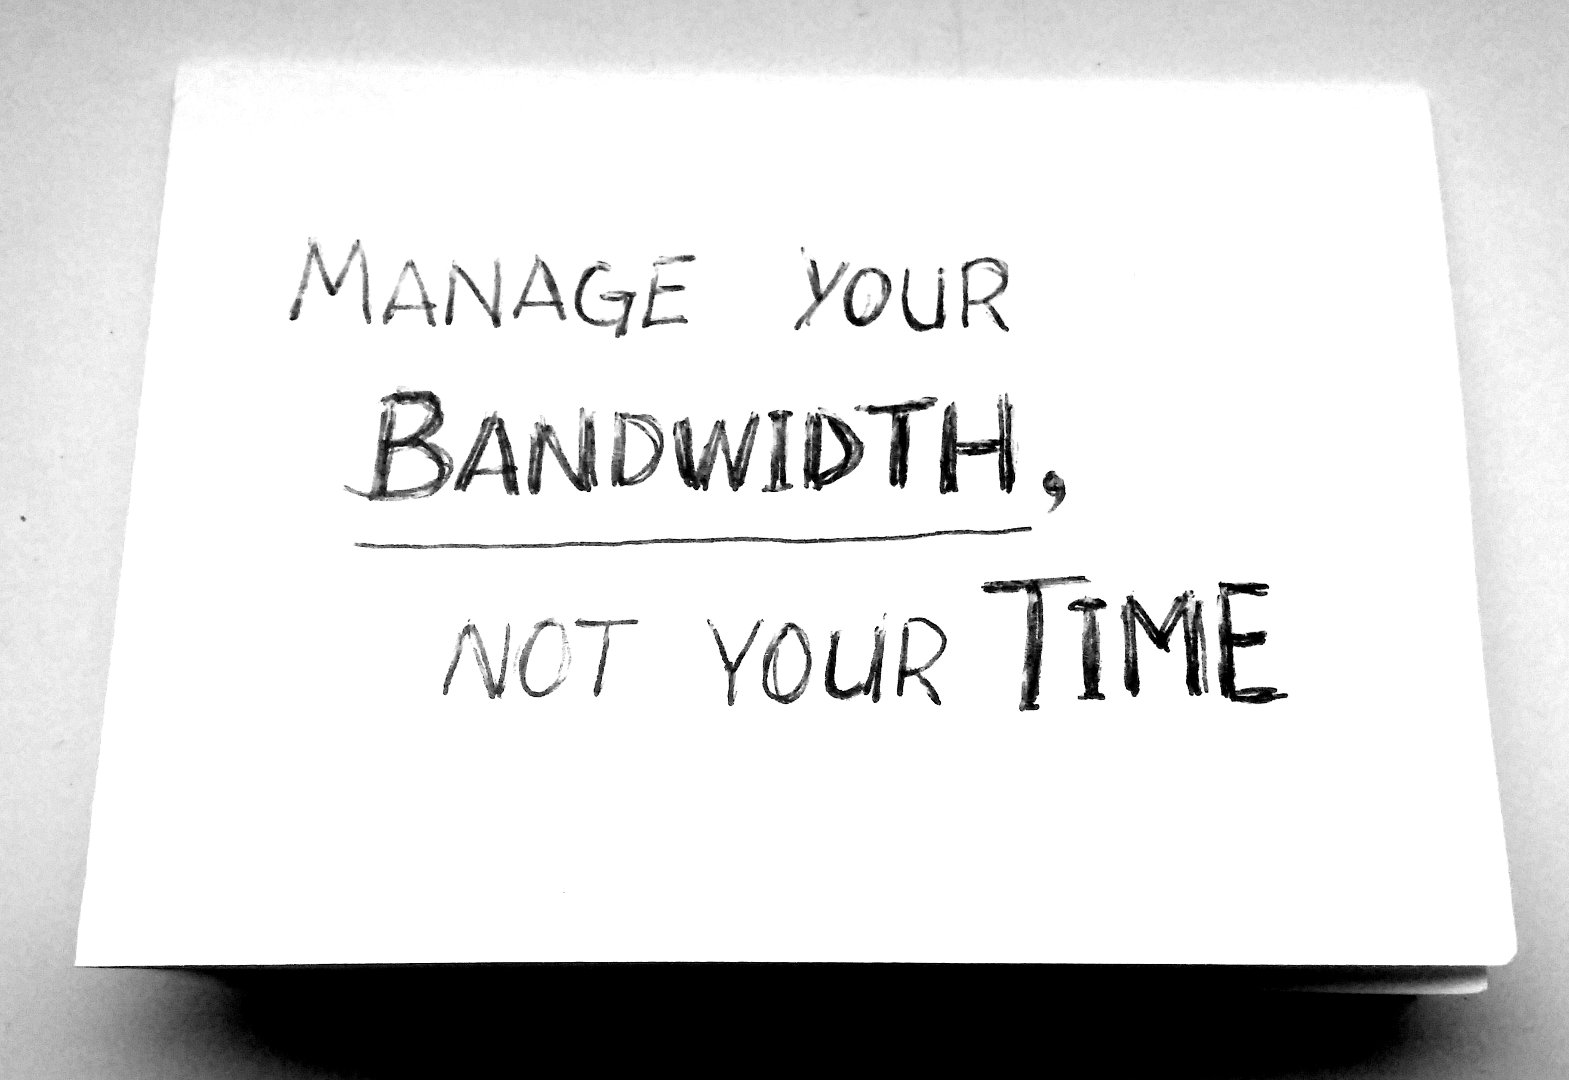 MANAGE YOUR
BANDWIDTH,
NOT YOUR TIME